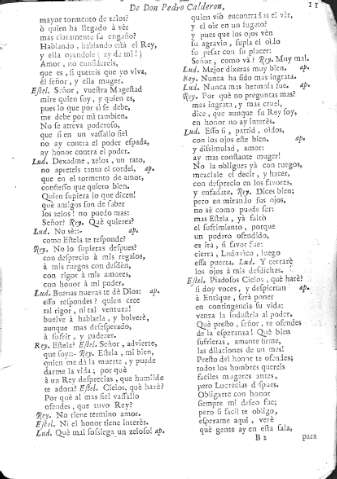 De Don Pedro Calderon.
mayor tormento de zelos?
ò quien ha llegado à vèr
mas claramente su engaño?
Hablando, hablando està el Rey,
y ella oyendole; ay de mi!
Amor, no consideres,
que es, si quereis que yo viva,
èl señor, y ella muger.
Estel. Señor, vuestra Magestad
mire quien soy, y quien es,
pues lo que por sì se debe,
me debe por mi tambien.
No se atreva poderoso,
que si en un vassallo fiel
no ay contra el poder espada,
ay honor contra el poder.
Lud. Dexadme, zelos, un rato,
no apreteis tanto el cordèl, ap.
que en el tormento de amor,
confiesso que quiero bien.
Quien supiera lo que dicen!
què amigos son de saber
los zelos! no puedo mas:
Señor? Rey. Què quieres?
Lud. No sè:- ap.
como Estela te responde?
Rey. No lo supieras despues?
con desprecio à mis regalos,
à mis ruegos con desdèn,
con rigor à mis amores,
con honor à mi poder.
Lud. Buenas nuevas te dè Dios: ap.
esta respondes? quien cree
tal rigor, ni tal ventura!
buelve à hablarla, y bolverè,
aunque mas desesperado,
à sufrir, y padecer.
Rey. Estela? Estel. Señor, advierte,
que soy:- Rey. Estela, mi bien,
quien me dà la muerte, y puede
darme la vida; por què
à un Rey desprecias, que humilde
te adora? Estel. Cielos, què harè?
Por què al mas fiel vassallo
ofendes, que tuvo Rey?
Rey. No tiene termino amor.
Estel. Ni el honor tiene interès.
Lud. Què mal sossiega un zeloso! ap.
quien viò encontrarse el vèr,
y el oìr en un sugeto!
y pues que los ojos vèn
su agravio, supla el oìdo
su pesar con su placer:
Señor, como và? Rey. Muy mal.
Lud. Mejor dixeras muy bien. ap.
Rey. Nunca ha sido mas ingrata.
Lud. Nunca mas hermosa fue. ap.
Rey. Por què no preguntas mas?
mas ingrata, y mas cruel,
dice, que aunque su Rey soy,
en honor no ay interès.
Lud. Esso sì, partid, oìdos,
con los ojos este bien, ap.
y dissimulad, amor:
ay mas constante muger!
No la obligues yà con ruegos,
mezclale el decir, y hacer,
con desprecio en los favores,
y enfadate. Rey. Dices bien;
pero en mirando sus ojos,
no sè como puede ser:
mas Estela, yà faltò
el sufrimiento, porque
un poderoso ofendido,
es ira, si favor fue:
cierra, Ludovico, luego
essa puerta. Lud. Y cerrarè
los ojos à mis desdichas.
Estel. Piadosos Cielos, què harè?
si doy voces, y despiertan ap.
à Enrique, serà poner
en contingencia su vida:
venza la industria al poder.
Què presto, señor, te ofendes
de la esperanza! Què bien
sufrieras, amante firme,
las dilaciones de un mes!
Presto del honor te ofendes;
todos los hombres quereis
faciles mugeres antes,
pero Lucrecias despues.
Obligarte con honor
siempre mi deseo fue;
pero si facil te obligo,
esperame aqui, verè
què gente ay en esta sala,
B 2
para